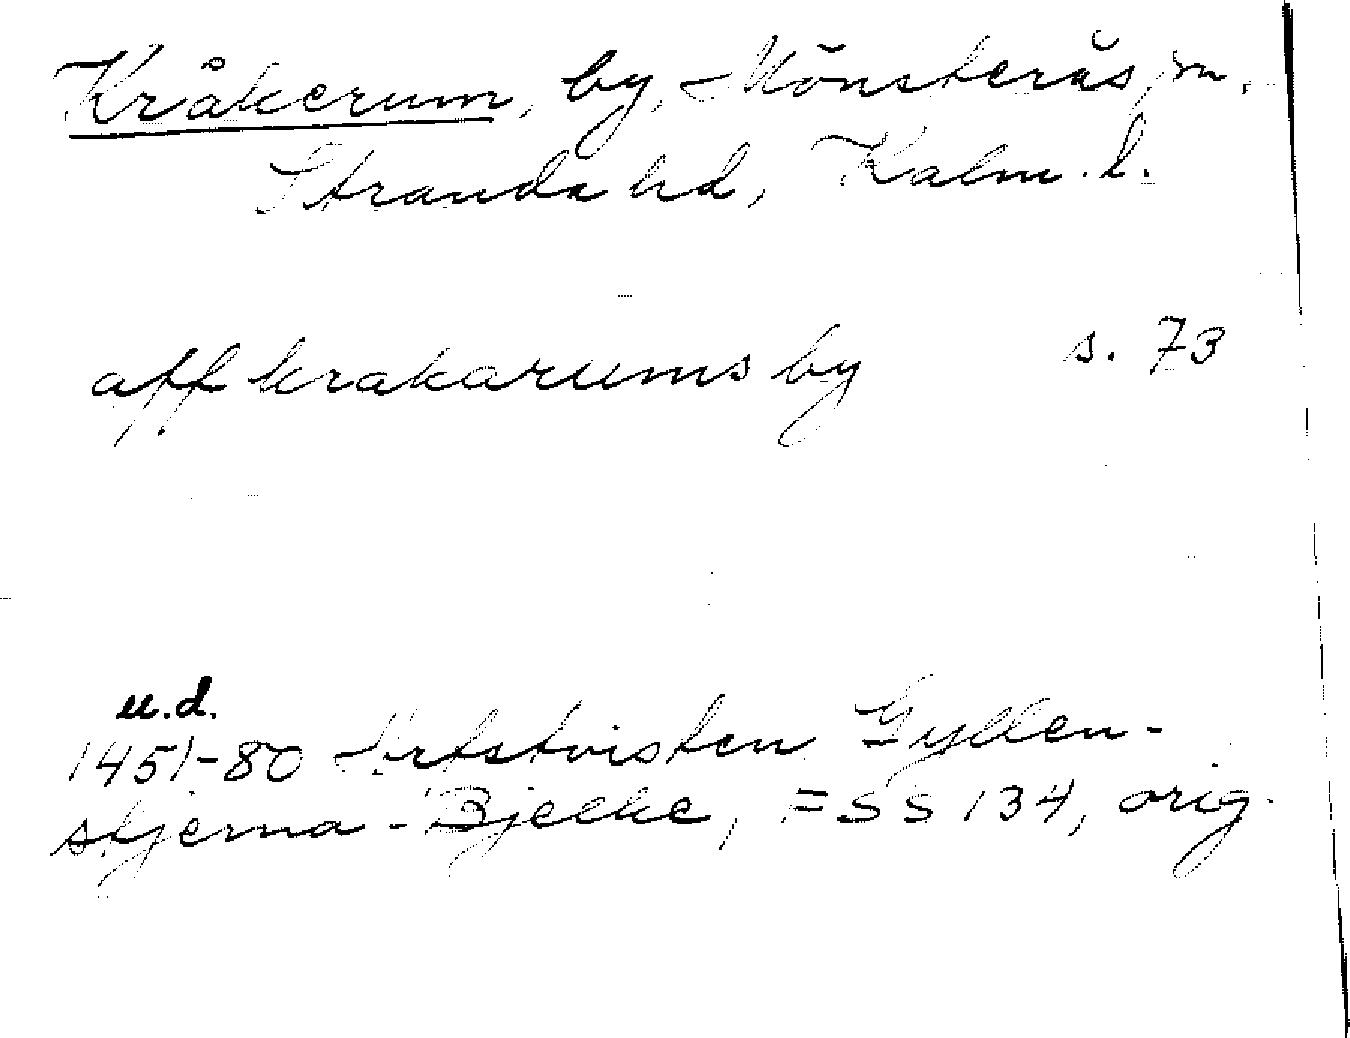 Kråkerum, by, Mönsterås sn.
Stranda hd, Kalm. l.
aff krakarums by s. 73
u.d.
1451-80 Arfstvisten Gyllen-
stjerna-Bjelke, FSS 134, orig.